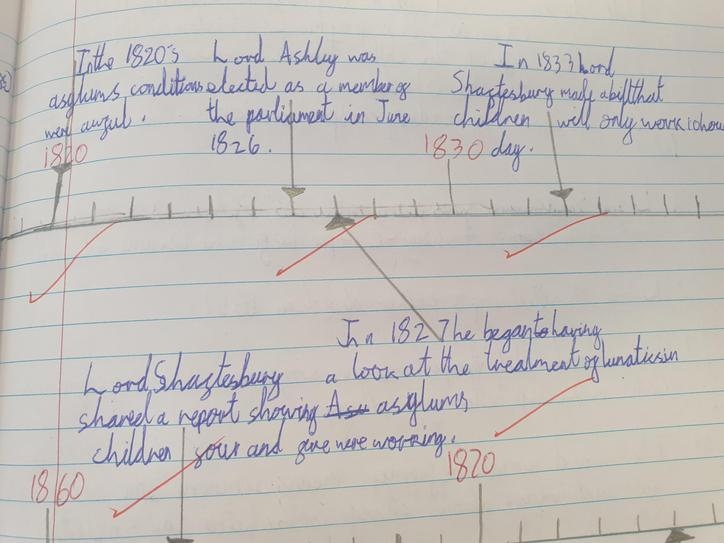 In the 1820's
asylums conditions
were awful.
1820
Lord Ashley was
elected as a member of
the parliament in June
1826.
In 1833 Lord
Shaftesbury made a bill that
children will only work 10hour
day.
1830
In 1827 he began to having
a look at the treatment of lunatics in
asylums
Lord Shaftesbury
shared a report showing
children four and five were working.
1860
1870